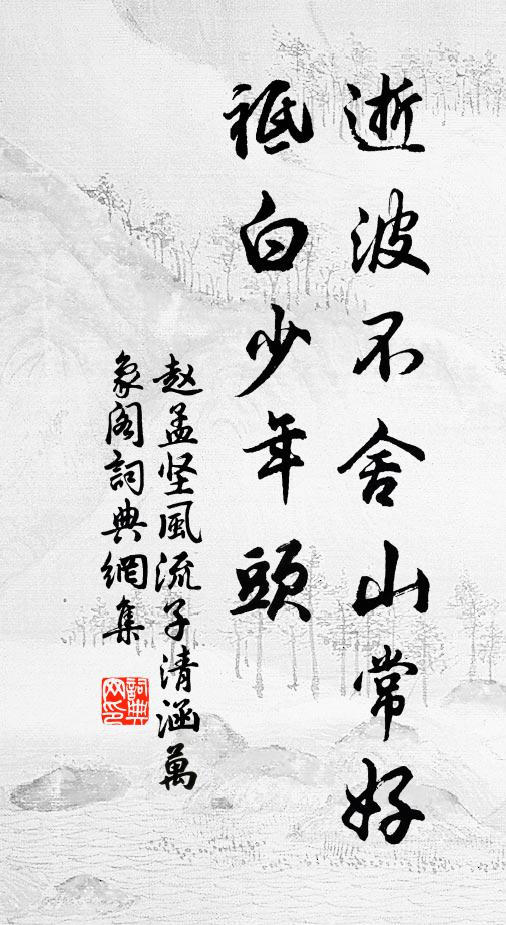 逝波不舍山常好
祗白少年頭
赵孟坚風流子清涵萬
象阁詞典網集
詞典
网印